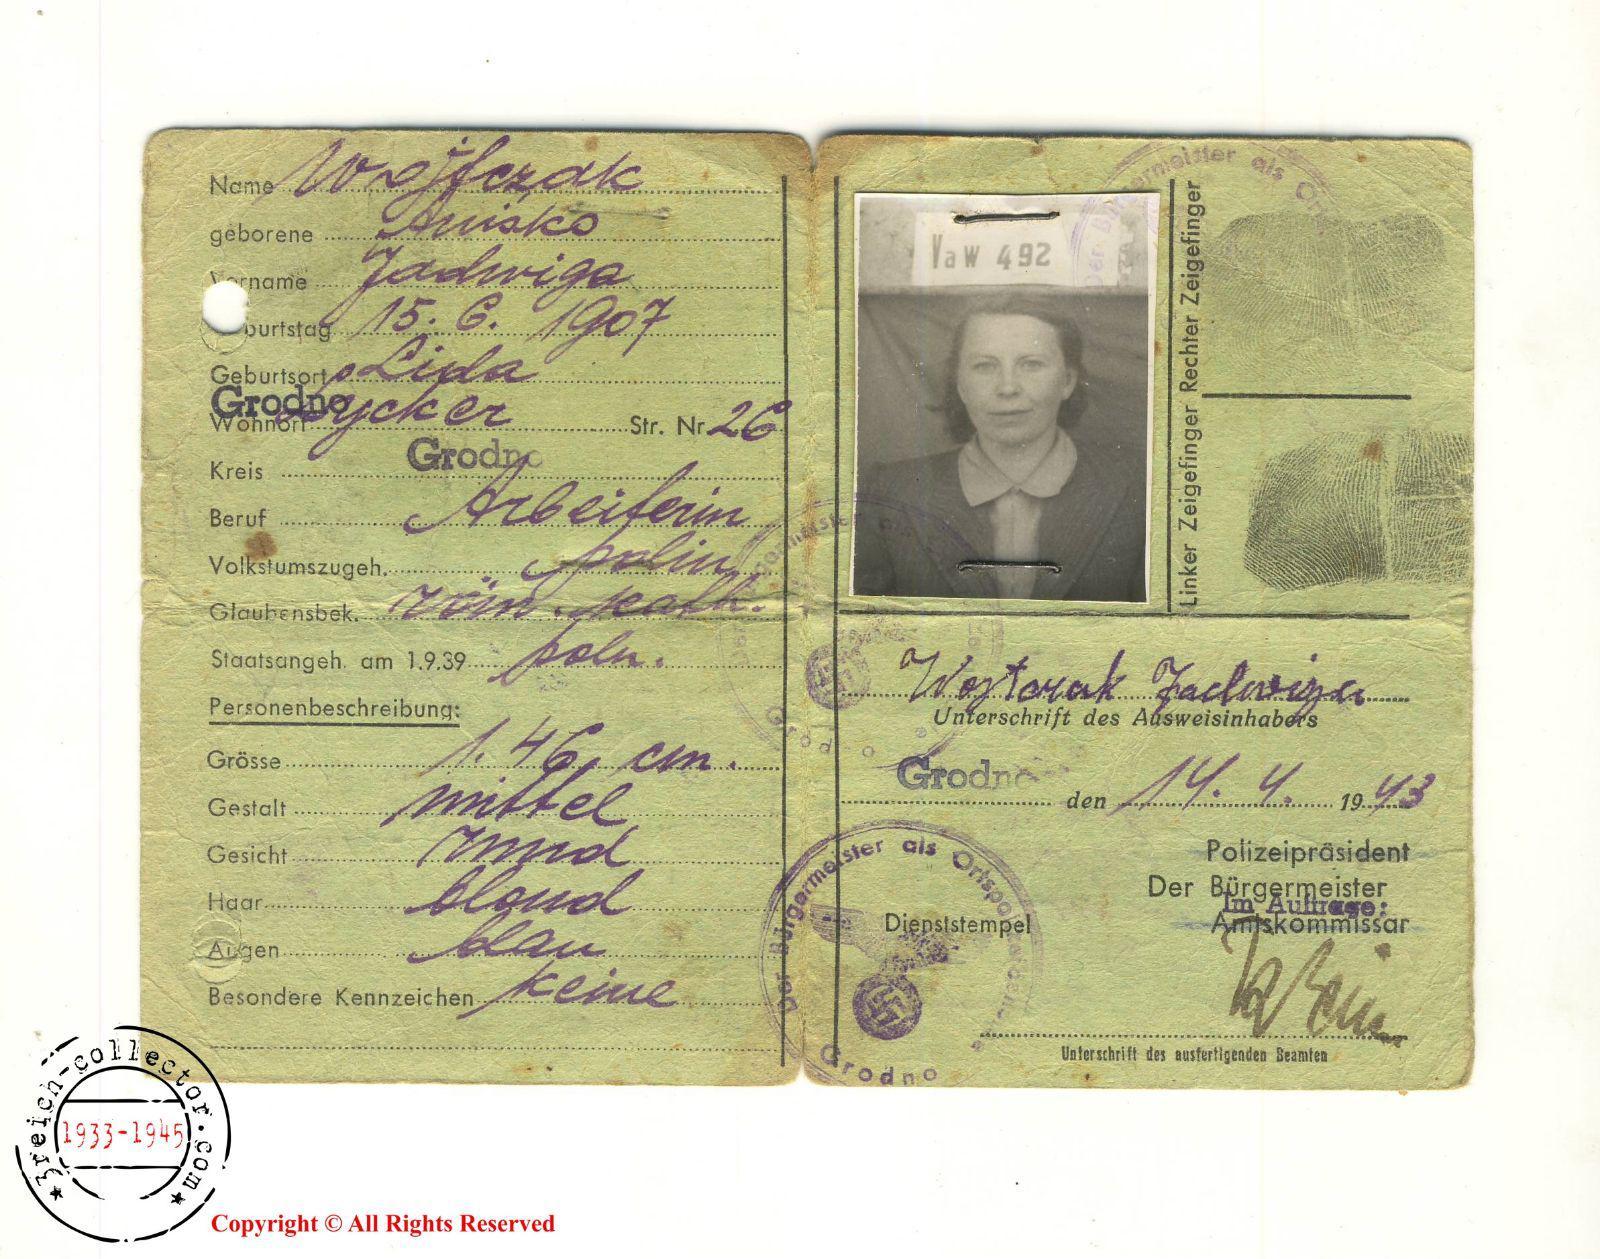 Name Wojtczak
geborene Anisko
Vorname Jadwiga
burtstag 15. 6. 1907
Geburtsort Lida
Grodno
Wohnort Lycker Str. Nr. 26
Kreis Grodno
Beruf Arbeiterin
Volkstumszugeh. polin
Glaubensbek. röm. kath.
Staatsangeh. am 1.9.39 poln.
Personenbeschreibung:
Grösse 1.46 cm.
Gestalt mittel
Gesicht rund
Haar blond
Augen blau
Besondere Kennzeichen keine
Vaw 492
Rechter Zeigefinger
Linker Zeigefinger
Wojtczak Jadwiga
Unterschrift des Ausweisinhabers
Grodno den 14. 4. 1943
Polizeipräsident
Der Bürgermeister
Im Auftrage:
Amtskommissar
Dienststempel
Unterschrift des ausfertigenden Beamten
Der Bürgermeister als
Grodno
Der Bürgermeister als
Grodno
ermeister als
3reich-collector.com
1933-1945
Copyright © All Rights Reserved